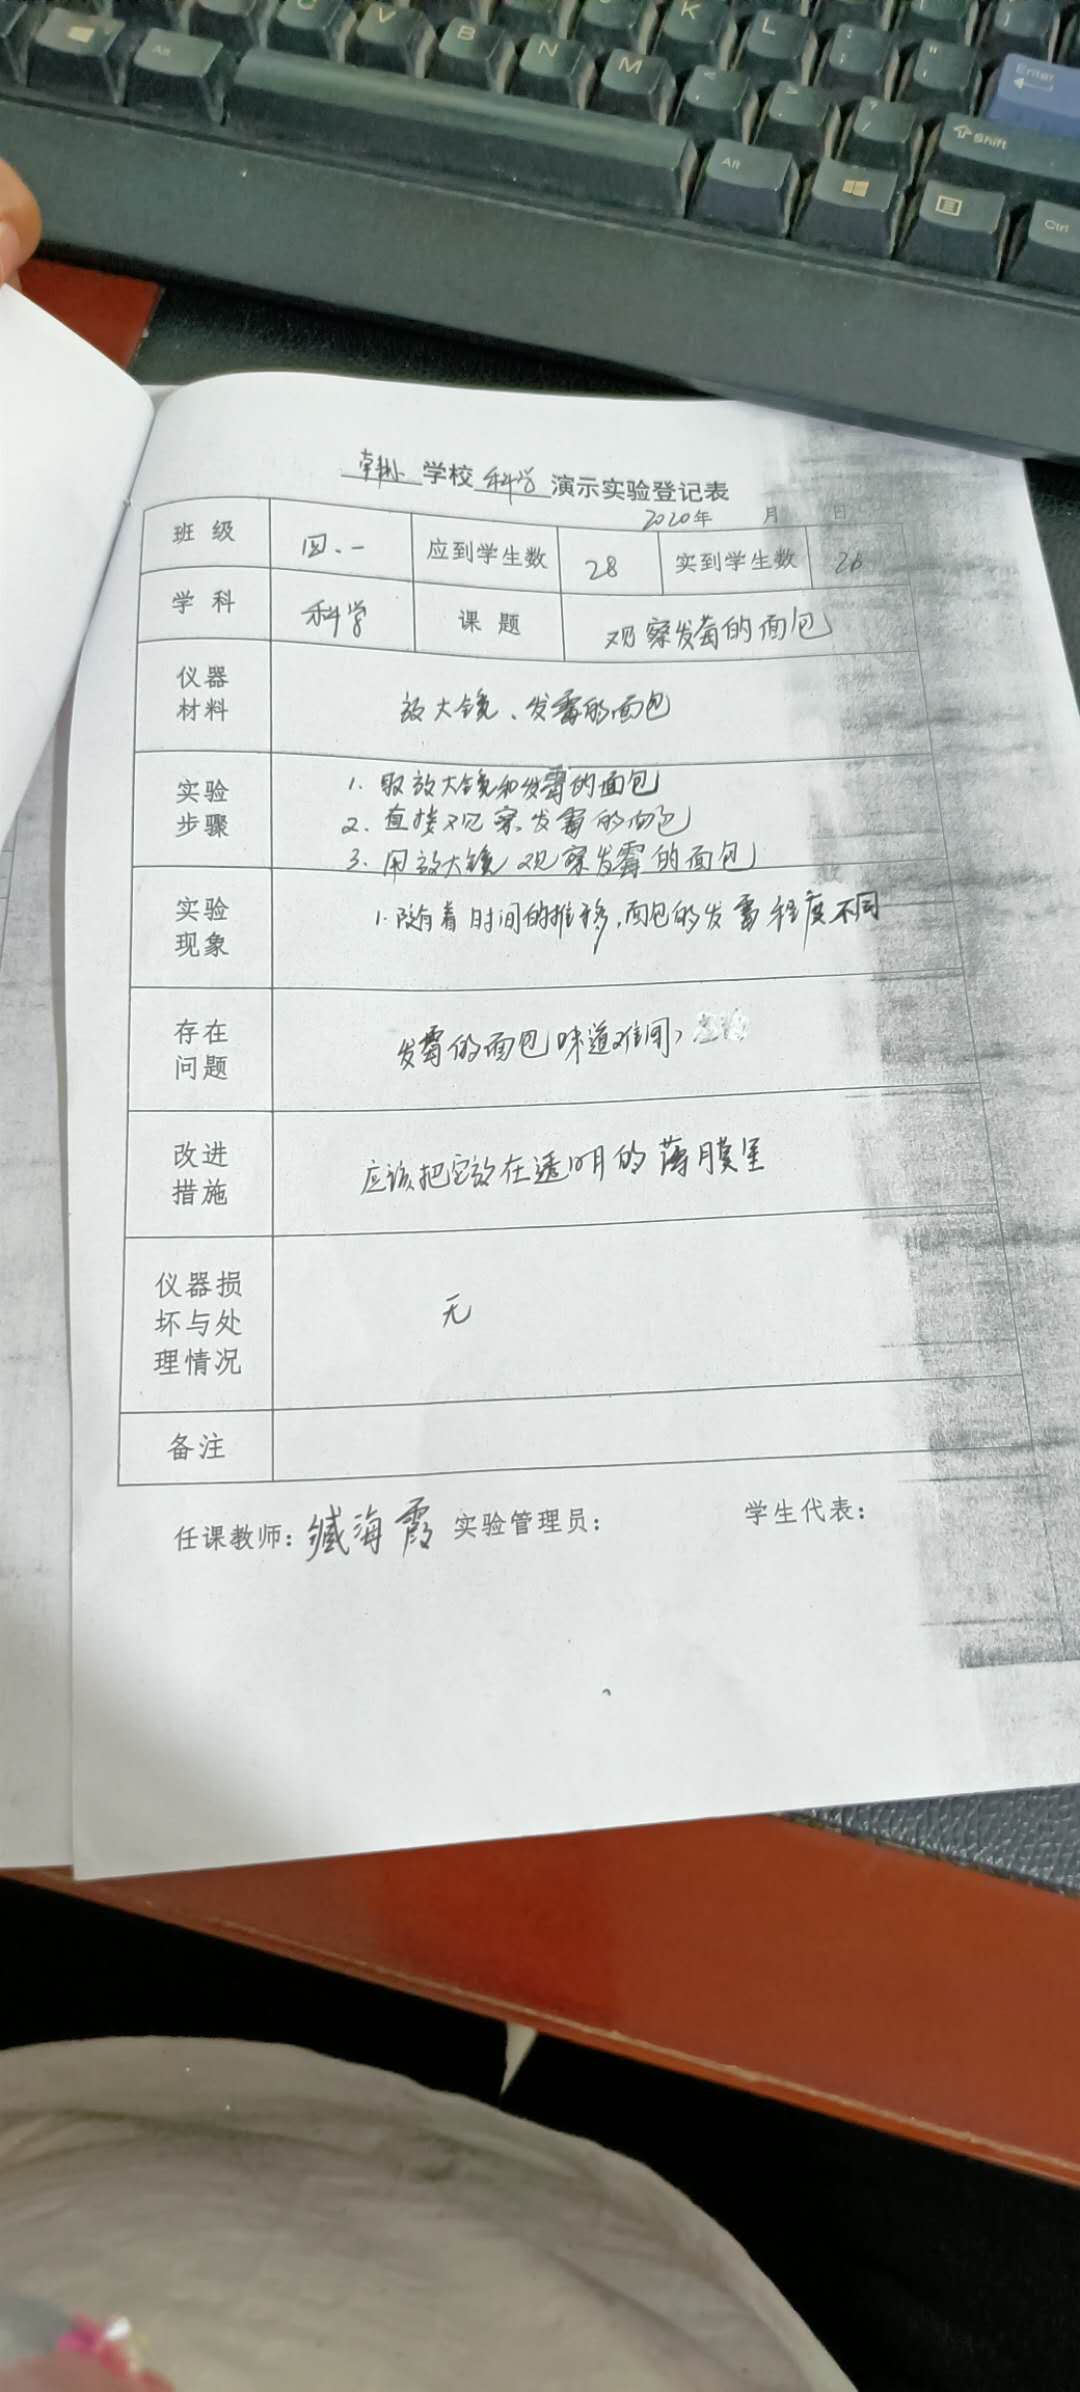 C V B N M K L : ; " '
Enter
Alt < , > . ? / Shift
Alt Ctrl
学校 科学 演示实验登记表
2020年 月 日
班级 四.一 应到学生数 28 实到学生数
学科 科学 课题 观察发莓的面包
仪器
材料
放大镜、发霉的面包
实验
步骤
1. 取放大镜和发霉的面包
2. 直接观察发霉的面包
3. 用放大镜观察发霉的面包
实验
现象
1. 随着时间的推移,面包的发霉程度不同
存在
问题
发霉的面包味道难闻,
改进
措施
应该把它放在透明的薄膜里
仪器损
坏与处
理情况
无
备注
任课教师: 臧海霞 实验管理员: 学生代表: